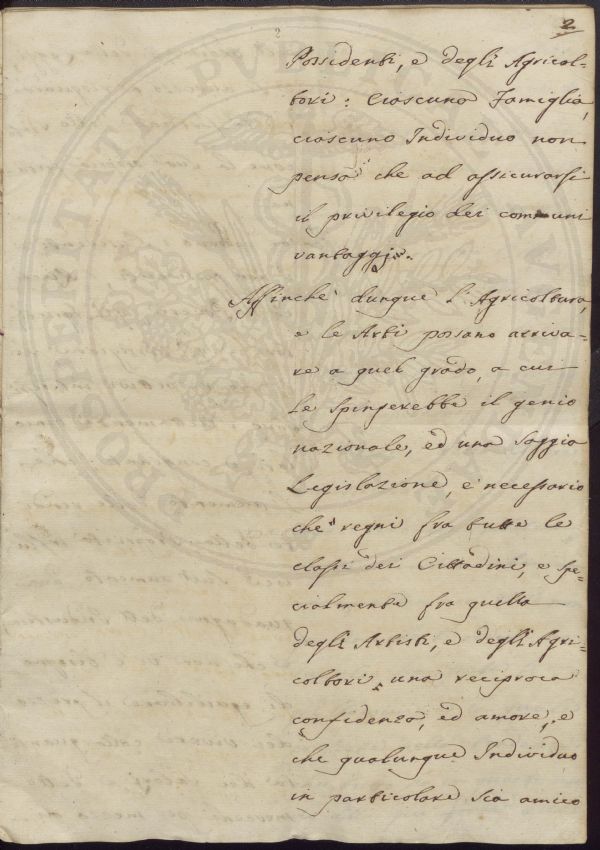 2
2
Possidenti, e degli Agricol-
tori: Ciascuna Famiglia,
ciascuno Individuo non
pensa che ad assicurarsi
il privilegio dei comuni
vantaggi.
Affinchè dunque l'Agricoltura,
e le Arti possano arriva=
re a quel grado, a cui
le spingerebbe il genio
nazionale, ed una saggia
Legislazione, è necessario
che regni fra tutte le
classi dei Cittadini, e spe=
cialmente fra quella
degli Artisti, e degli Agri=
coltori, una reciproca
confidenza, ed amore, e
che qualunque Individuo
in particolare sia amico
PROSPERITATI PUBLICAE